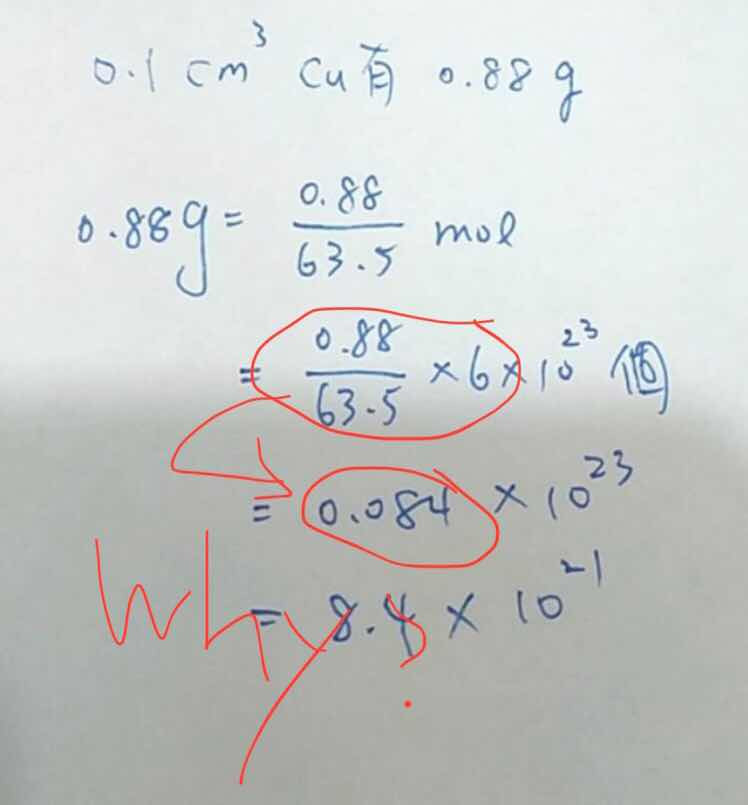 0.1 cm³ Cu有 0.88 g
0.88g = 0.88/63.5 mol
= 0.88/63.5 × 6 × 10²³ 個
= 0.084 × 10²³
= 8.4 × 10²¹
Why?